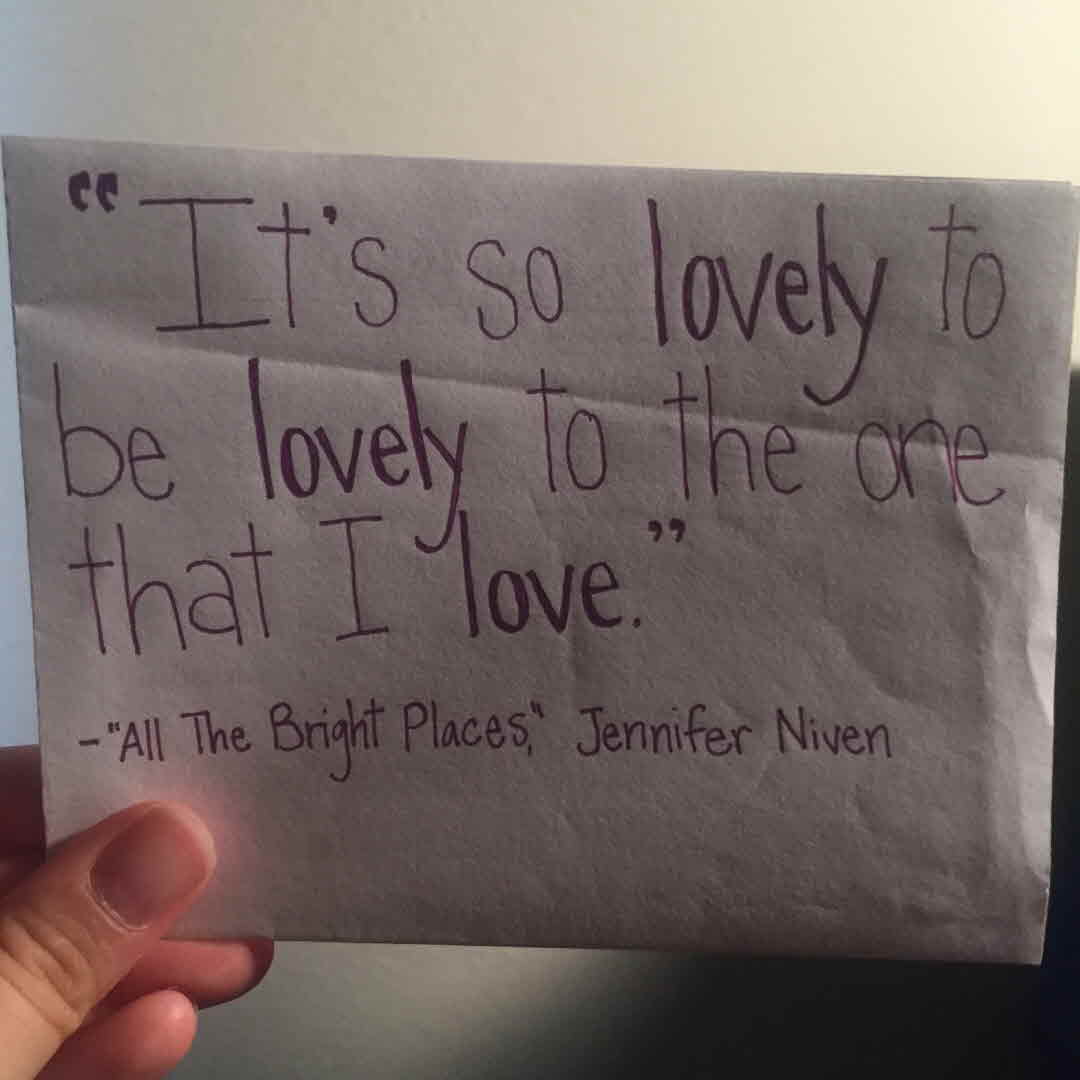 “It's so lovely to
be lovely to the one
that I love.”
-"All The Bright Places," Jennifer Niven